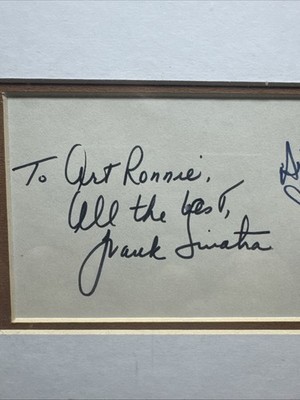 To Art Ronnie,
All the best,
Frank Sinatra